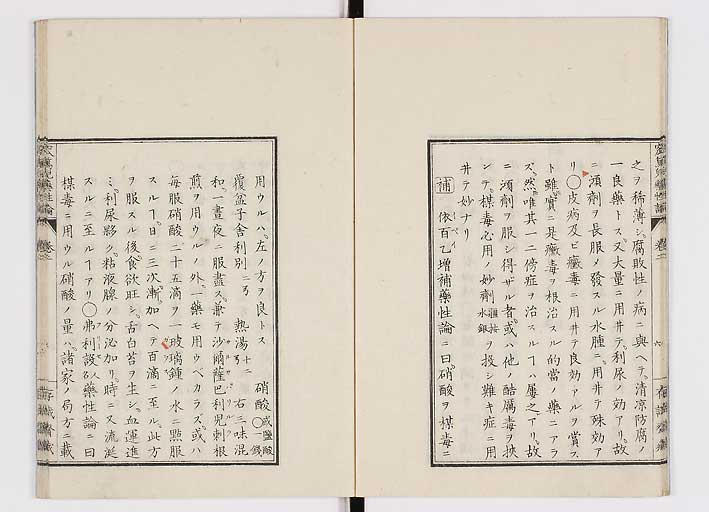 之ヲ稀薄シ腐敗性ノ病ニ與ヘテ清凉防腐ノ
一良藥トス又大量ニ用井テ利尿ノ効アリ故
ニ須剤ヲ長服メ發スル水腫ニ用井テ殊効ア
リ〇皮病及ビ黴毒ニ用井テ良効アルヲ賞ス
ト雖𪜈實ニ是黴毒ヲ根治スル的當ノ藥ニアラ
ズ然𪜈唯其一二傍症ヲ治スルヿハ屢之アリ故
ニ須剤ヲ服シ得ザル者或ハ他ノ酷厲毒ヲ挾
ンデ楳毒必用ノ妙劑ヲ投シ難キ症ニ用
水銀
井テ妙ナリ
補 依百乙増補藥性論ニ曰硝酸ヲ楳毒ニ
用ウルハ左ノ方ヲ良トス 硝酸 〇一錢
覆盆子舎利別 熱湯 右三味混
和一晝夜ニ服盡ス兼テ沙爾薩巴利児刺根
煎ヲ用ウルノ外一藥モ用ウベカラズ或ハ
毎服硝酸二十五滴ヲ一玻璃鍾ノ水ニ點服
スルヿ日ニ三次漸加ヘテ百滴ニ至ル此方
ヲ服スル後食欲旺シ舌白苔ヲ生シ血運進
ミ利尿夥ク粘液腺ノ分泌加リ時ニ又流涎
スルニ至ルヿアリ〇弗利設藥性論ニ曰
楳毒ニ用ウル硝酸ノ量ハ諸家ノ局方ニ載